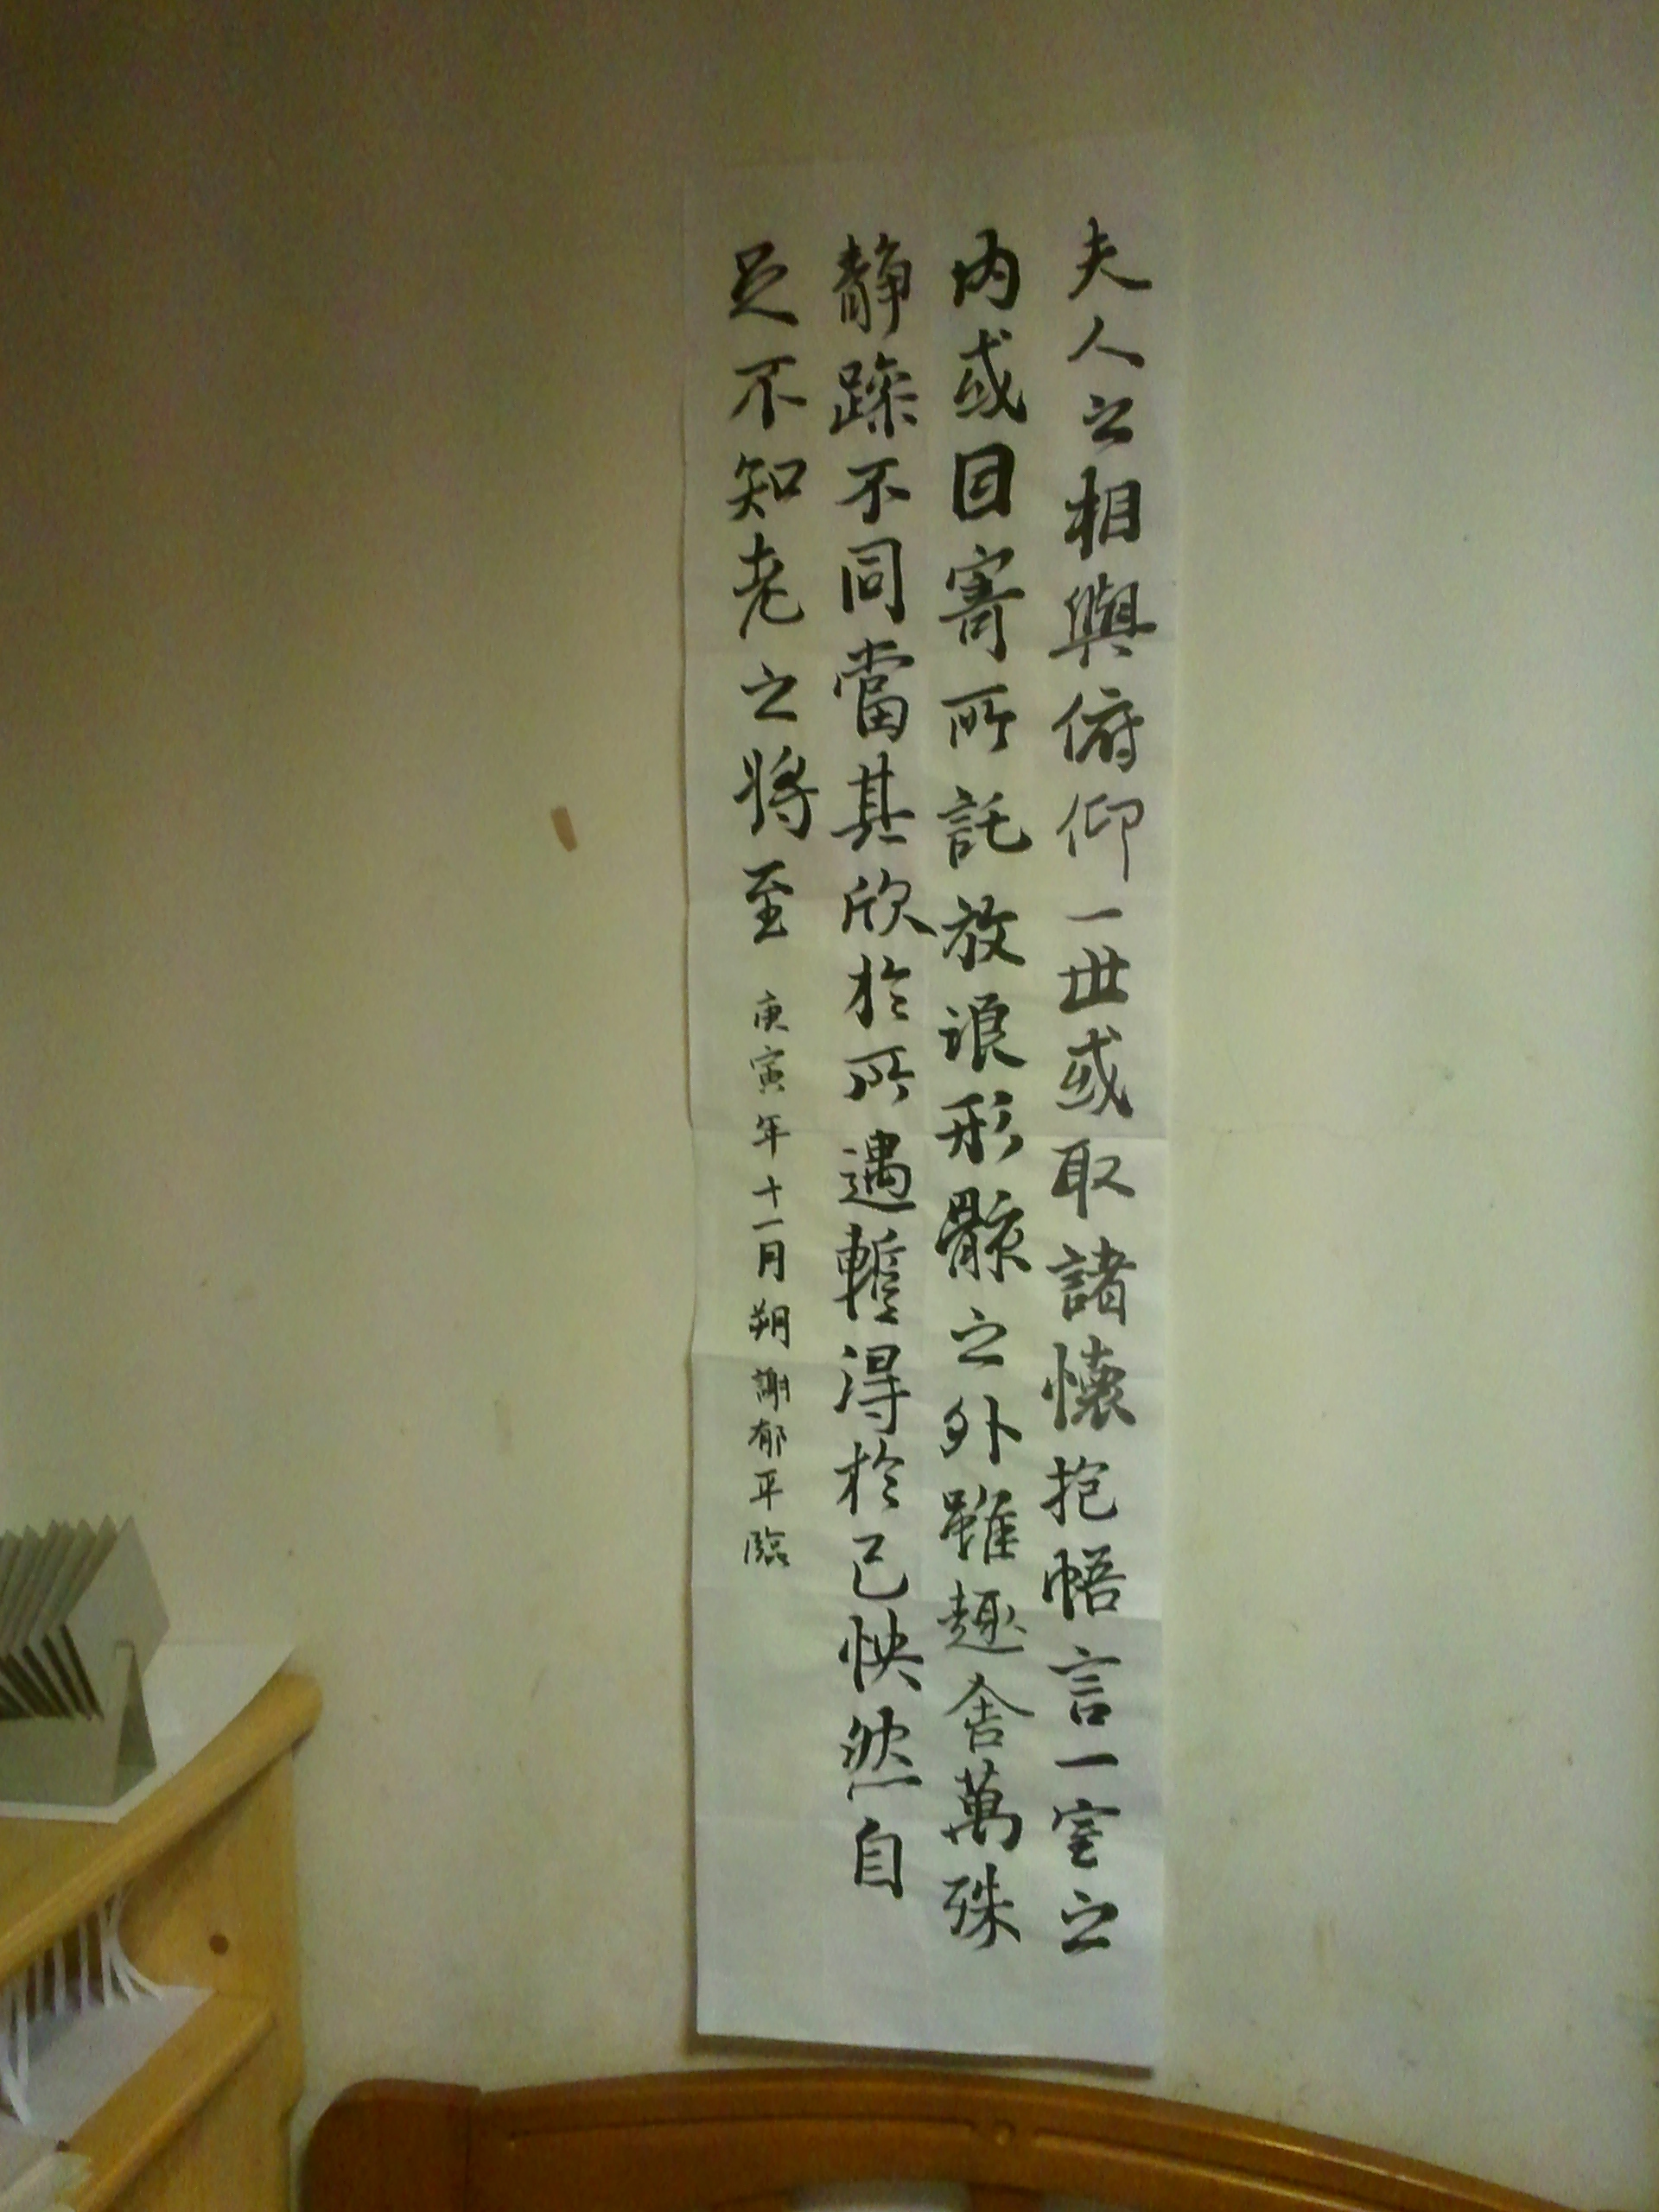 夫人之相與俯仰一世或取諸懷抱悟言一室之
內或因寄所託放浪形骸之外雖趣舍萬殊
靜躁不同當其欣於所遇暫得於己怏然自
足不知老之將至 庚寅年十一月朔謝郁平臨